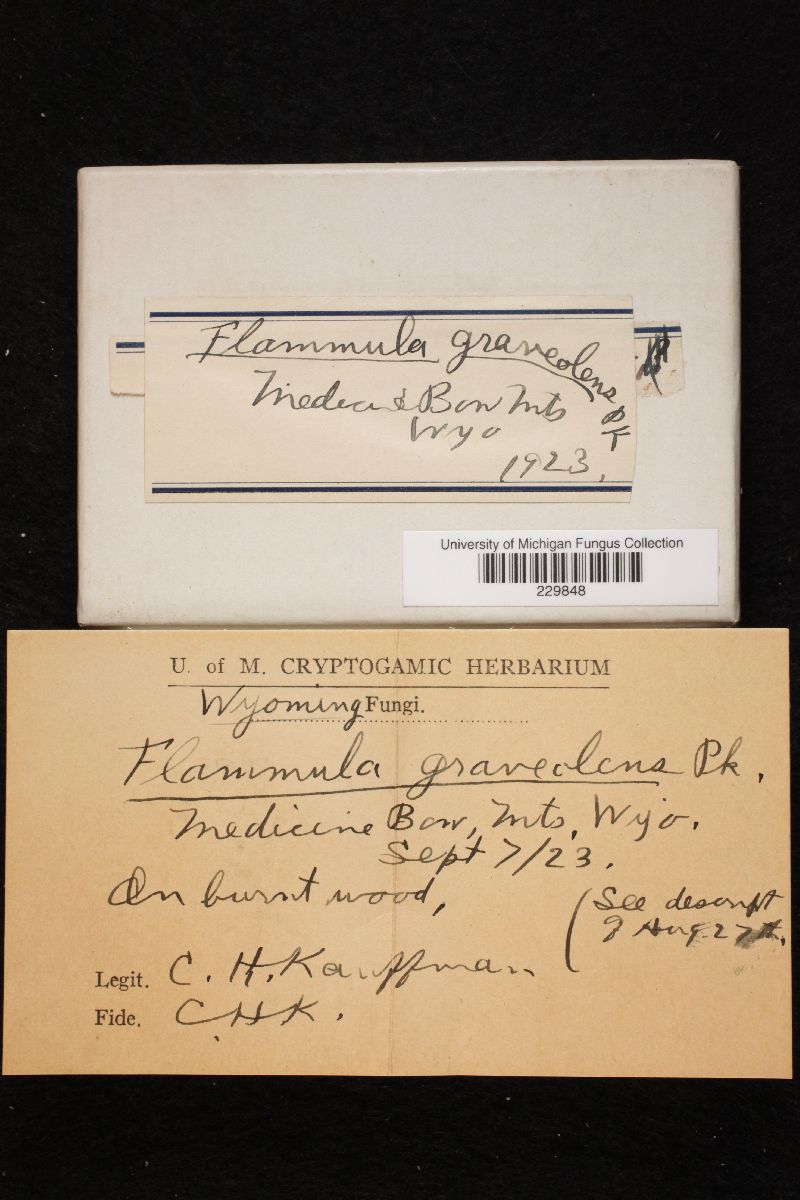 Flammula graveolens Pk
Medicine Bow Mts
Wyo
1923.
University of Michigan Fungus Collection
229848
U. of M. CRYPTOGAMIC HERBARIUM
Wyoming Fungi.
Flammula graveolens Pk.
Medicine Bow, Mts, Wyo.
Sept 7/23.
On burnt wood,
(See descript
of Aug 27th.
Legit. C. H. Kauffman
Fide. C H K.